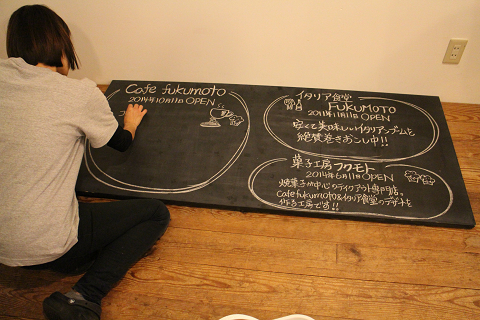 Cafe fukumoto
2014年10月11日 OPEN
イタリア食堂
FUKUMOTO
2011年11月11日 OPEN
安くて美味しいイタリアンブームを
絶賛巻きおこし中!!
菓子工房フクモト
2014年6月11日 OPEN
焼菓子が中心のテイクアウト専門店。
Cafe fukumoto&イタリア食堂のデザートを
作る工房です!!